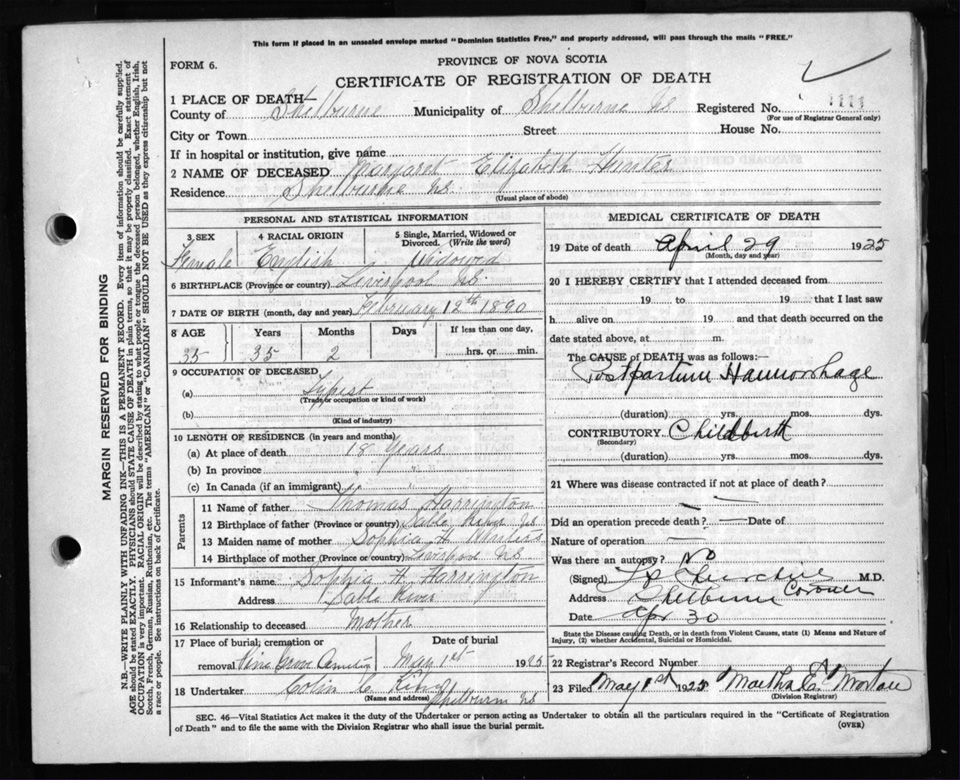 This form if placed in an unsealed envelope marked "Dominion Statistics Free," and properly addressed, will pass through the mails "FREE."
FORM 6.
PROVINCE OF NOVA SCOTIA
CERTIFICATE OF REGISTRATION OF DEATH
1 PLACE OF DEATH—
County of Shelburne Municipality of Shelburne NS Registered No.
(For use of Registrar General only)
City or Town Street House No.
If in hospital or institution, give name
2 NAME OF DECEASED Margaret Elizabeth Hunter
Residence Shelburne NS.
(Usual place of abode)
PERSONAL AND STATISTICAL INFORMATION
3 SEX 4 RACIAL ORIGIN 5 Single, Married, Widowed or Divorced. (Write the word)
Female English Widowed
6 BIRTHPLACE (Province or country) Liverpool NS.
7 DATE OF BIRTH (month, day and year) February 12th 1890
8 AGE Years Months Days If less than one day,
35 35 2 hrs. or min.
9 OCCUPATION OF DECEASED
(a) Typest
(Trade or occupation or kind of work)
(b)
(Kind of industry)
10 LENGTH OF RESIDENCE (in years and months)
(a) At place of death 18 Years
(b) In province "
(c) In Canada (if an immigrant) "
Parents
11 Name of father Thomas Harrington
12 Birthplace of father (Province or country) Sable River NS
13 Maiden name of mother Sophia H
14 Birthplace of mother (Province or country) NS.
15 Informant's name Sophia H. Harrington
Address Sable River
16 Relationship to deceased Mother
17 Place of burial, cremation or Date of burial
removal Pine Grove May 1st 1925
18 Undertaker Colin C. King
(Name and address) Shelburn NS
MEDICAL CERTIFICATE OF DEATH
19 Date of death April 29 1925
(Month, day and year)
20 I HEREBY CERTIFY that I attended deceased from
19 to 19 that I last saw
h alive on 19 and that death occurred on the
date stated above, at m.
The CAUSE of DEATH was as follows:—
Postpartum Haemorrhage
(duration) yrs. mos. dys.
CONTRIBUTORY Childbirth
(Secondary)
(duration) yrs. mos. dys.
21 Where was disease contracted if not at place of death?
—
Did an operation precede death? — Date of
Nature of operation —
Was there an autopsy? No
(Signed) Churchill M.D.
Address Shelburne Coroner
Date Apr 30
State the Disease causing Death, or in death from Violent Causes, state (1) Means and Nature of
Injury; (2) whether Accidental, Suicidal or Homicidal.
22 Registrar's Record Number
23 Filed May 1st 1925 Martha E. Morton
(Division Registrar)
SEC. 46—Vital Statistics Act makes it the duty of the Undertaker or person acting as Undertaker to obtain all the particulars required in the "Certificate of Registration
of Death" and to file the same with the Division Registrar who shall issue the burial permit.
(OVER)
MARGIN RESERVED FOR BINDING
N.B.—WRITE PLAINLY WITH UNFADING INK—THIS IS A PERMANENT RECORD. Every item of information should be carefully supplied.
AGE should be stated EXACTLY. PHYSICIANS should STATE CAUSE OF DEATH in plain terms, so that it may be properly classified. Exact statement of
OCCUPATION is very important. RACIAL ORIGIN will be described by stating to what people or tongue the deceased person belonged, whether English, Irish,
Scotch, French, German, Russian, Ruthenian, etc. The terms "AMERICAN" or "CANADIAN" SHOULD NOT BE USED as they express citizenship but not
a race or people. See instructions on back of Certificate.